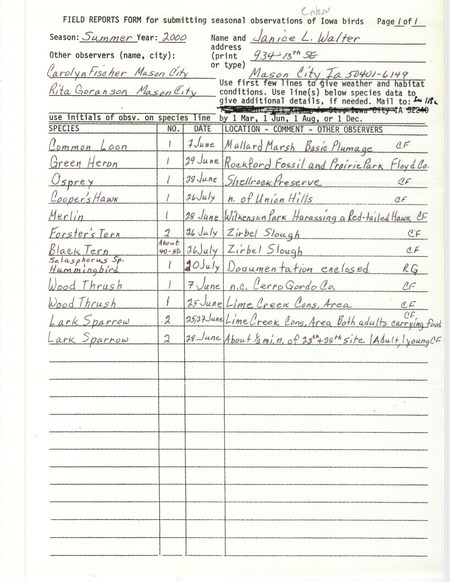 FIELD REPORTS FORM for submitting seasonal observations of Iowa birds Page 1 of 1
Season: Summer Year: 2000 Name and Janice L. Walter
Other observers (name, city): address
(print 934-13th SE
or type)
Carolyn Fischer Mason City Mason City Ia 50401-6149
Rita Goranson Mason City Use first few lines to give weather and habitat
conditions. Use line(s) below species data to
give additional details, if needed. Mail to:
use initials of obsv. on species line by 1 Mar, 1 Jun, 1 Aug, or 1 Dec.
SPECIES NO. DATE LOCATION - COMMENT - OTHER OBSERVERS
Common Loon 1 7 June Mallard Marsh Basic Plumage CF
Green Heron 1 29 June Rockford Fossil and Prairie Park Floyd Co.
Osprey 1 28 June Shellrock Preserve CF
Cooper's Hawk 1 26 July n. of Union Hills CF
Merlin 1 28 June Wilkenson Park Harassing a Red-tailed Hawk CF
Forster's Tern 2 26 July Zirbel Slough CF
Black Tern About 40-50 26 July Zirbel Slough CF
Selasphorus Sp.
Hummingbird 1 20 July Documentation enclosed RG
Wood Thrush 1 7 June n.c. Cerro Gordo Co. CF
Wood Thrush 1 25 June Lime Creek Cons. Area CF
Lark Sparrow 2 25,27 June Lime Creek Cons. Area Both adults carrying food CF,
Lark Sparrow 2 28 June About ½ mi n. of 25th+28th site 1 Adult, 1 young CF